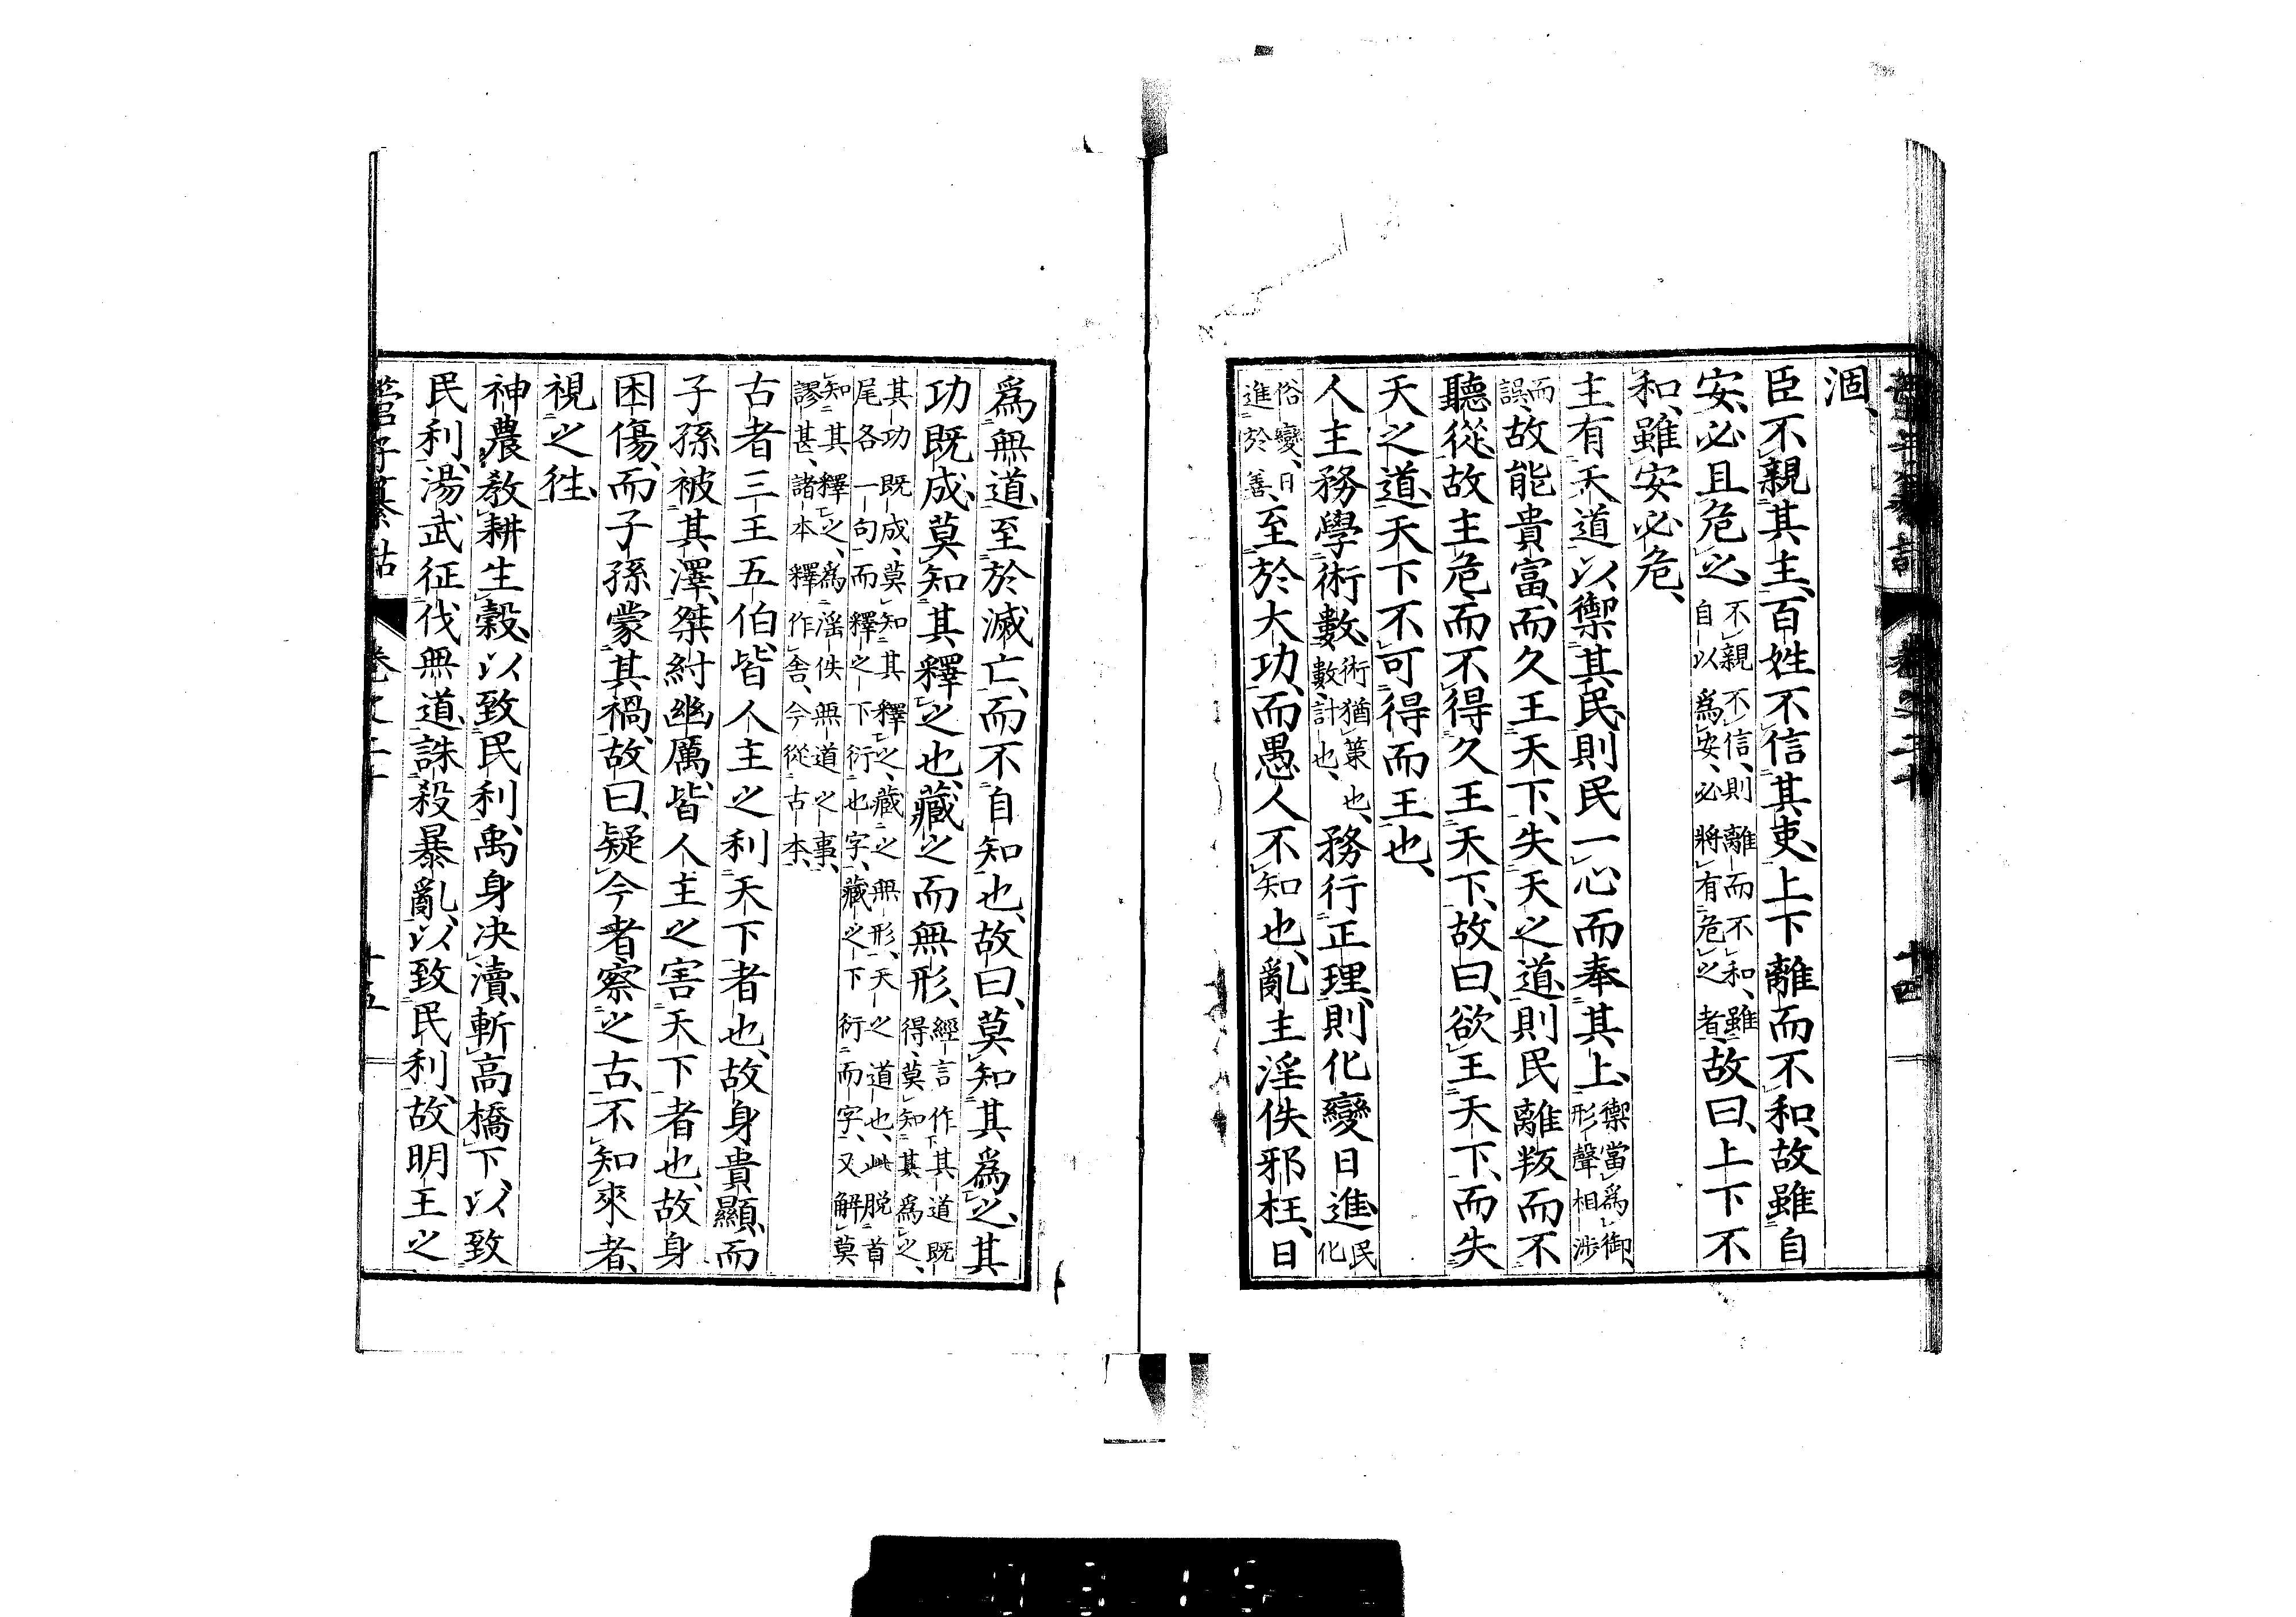 涸、
臣不親其主、百姓不信其吏、上下離而不和、故雖自
安、必且危之、不親不信、則離而不和、雖自以爲安、必將有危之者、故曰、上下不
和、雖安必危、
主有天道、以禦其民、則民一心而奉其上、禦當爲御、形聲相涉
而誤、故能貴富、而久王天下、失天之道、則民離叛而不
聽從、故主危、而不得久王天下、故曰、欲王天下、而失
天之道、天下不可得而王也、
人主務學術數、術猶策也、數、計也、務行正理、則化變日進、民化
俗變、日進於善、至於大功、而愚人不知也、亂主淫佚邪枉、日
爲無道、至於滅亡、而不自知也、故曰、莫知其爲之、其
功既成、莫知其釋之也、藏之而無形、經言作其道既得、莫知其爲之、
其功既成、莫知其釋之、藏之無形、天之道也、此脱首尾各一句、而釋之下衍也字、藏之下衍而字、又解莫
知其釋之、爲淫佚無道之事、謬甚、諸本釋作舍、今從古本、
古者三王五伯、皆人主之利天下者也、故身貴顯、而
子孫被其澤、桀紂幽厲、皆人主之害天下者也、故身
困傷、而子孫蒙其禍、故曰、疑今者察之古、不知來者、
視之往、
神農敎耕生穀、以致民利、禹身决瀆、斬高橋下、以致
民利、湯武征伐無道、誅殺暴亂、以致民利、故明王之
管子纂詁 卷之二十 十五